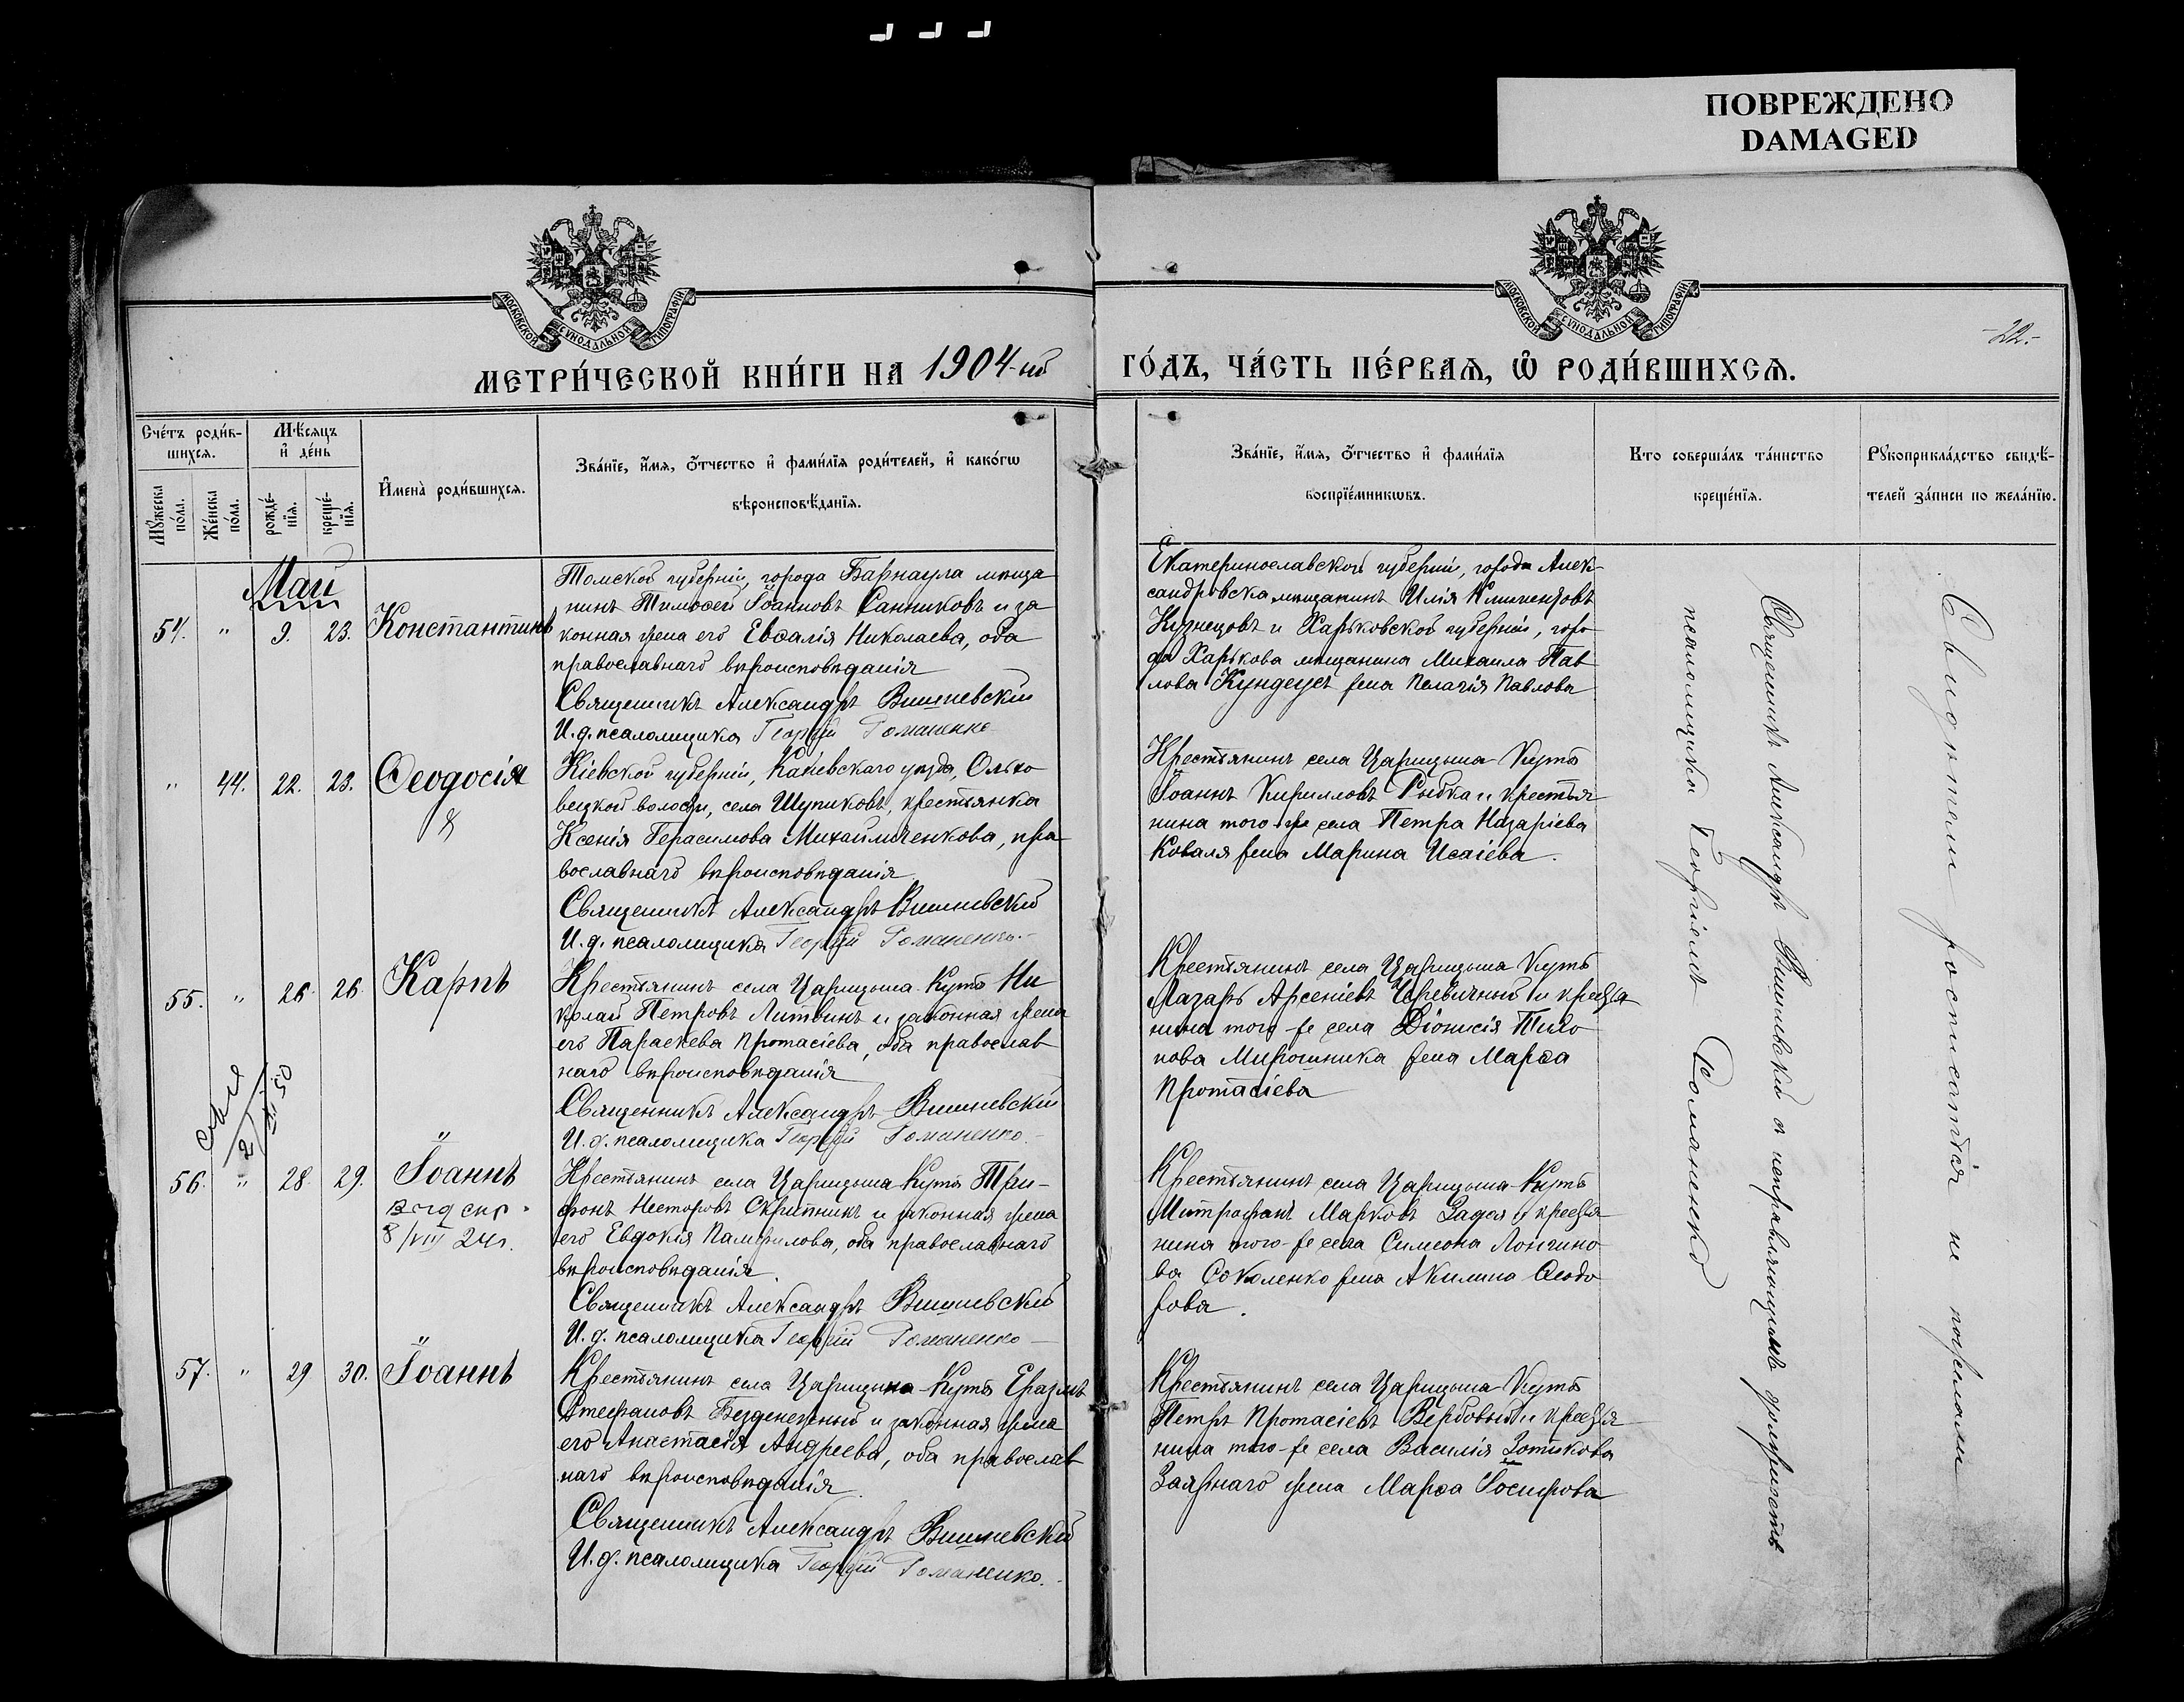 ПОВРЕЖДЕНО
DAMAGED
МОСКОВСКОЙ СѴНОДАЛЬНОЙ ТИПОГРАФІИ
МОСКОВСКОЙ СѴНОДАЛЬНОЙ ТИПОГРАФІИ
-22.-
МЕТРИ́ЧЕСКОЙ КНИ́ГИ НА 1904-ый
ГО́ДЪ, ЧА́СТЬ ПЕ́РВАѦ, Ѽ РОДИ́ВШИХСѦ.
Сче́тъ роди́в-
шихся.
Мѣ́сяцъ
и҆ де́нь
Мꙋ́жеска
по́ла.
Же́нска
по́ла.
рожде́-
нїя.
креще́-
нїя.
И҆мена̀ роди́вшихся.
Зва́нїе, и҆́мя, ѻ҆́тчество и҆ фами́лїя роди́телей, и҆ како́гѡ
вѣроисповѣ́данїя.
Зва́нїе, и҆́мя, ѻ҆́тчество и҆ фами́лїя
воспрїе́мникѡвъ.
Кто соверша́лъ та́инство
креще́нїя.
Рꙋкоприкла́дство свидѣ́-
телей за́писи по жела́нїю.
Май
54. " 9. 23. Константинъ
Томской губерніи, города Барнаула мѣща
нинъ Тимоѳей Іоанновъ Санниковъ и за
конная жена его Евѳалія Николаева, оба
православнаго вѣроисповѣданія
Священникъ Александръ Вишневскій
И. д. псаломщика Георгій Романенко
Екатеринославской губерніи, города Алек-
сандровска мѣщанинъ Илія Климентовъ
Кузнецовъ и Харьковской губерніи, горо
да Харькова мѣщанина Михаила Пав
лова Кундеусъ жена Пелагія Павлова
" 44. 22. 23. Ѳеодосія
Кіевской губерніи, Каневскаго уѣзда, Ольхо
вецкой волости, села Шупиковъ, крестьянка
Ксенія Герасимова Михайличенкова, пра
вославнаго вѣроисповѣданія
Священникъ Александръ Вишневскій
И. д. псаломщика Георгій Романенко.-
Крестьянинъ села Царицына-Кута
Іоаннъ Кирилловъ Рыбка и крестья
нина того-же села Петра Назаріева
Коваля жена Марина Исаіева.
55. " 26. 26. Карпъ
Крестьянинъ села Царицына-Кута Ни
колай Петровъ Литвинъ и законная жена
его Параскева Протасіева, оба православ
наго вѣроисповѣданія
Священникъ Александръ Вишневскій
И. д. псаломщика Георгій Романенко.-
Крестьянинъ села Царицына Кута
Лазарь Арсеніевъ Черевичный и кресть
нина того-же села Діонисія Тихо
нова Мирошника жена Марѳа
Протасіева
2/XII 50
56. " 28. 29. Іоаннъ
8/VIII 24г.
Крестьянинъ села Царицына-Кута Три-
фонъ Несторовъ Скрипникъ и законная жена
его Евдокія Памфилова, оба православнаго
вѣроисповѣданія.
Священникъ Александръ Вишневскій
И. д. псаломщика Георгій Романенко
Крестьянинъ села Царицына-Кута
Митрофанъ Марковъ Задоя и кресть
нина того-же села Симеона Лонгино
ва Соколенко жена Акилина Ѳеодо
рова.
57. " 29 30. Іоаннъ
Крестьянинъ села Царицына-Кута Еразмъ
Стефановъ Безденежный и законная жена
его Анастасія Андреева, оба православ
наго вѣроисповѣданія.
Священникъ Александръ Вишневскій
И. д. псаломщика Георгій Романенко.
Крестьянинъ села Царицына Кута
Петръ Протасіевъ Вербовый и кресть
нина того-же села Василія Зотикова
Заяжнаго жена Марѳа Іосифова
Священникъ Александръ Вишневскій с исправляющимъ должность
псаломщика Георгіемъ Романенко
Свидѣтели росписаться не пожелали